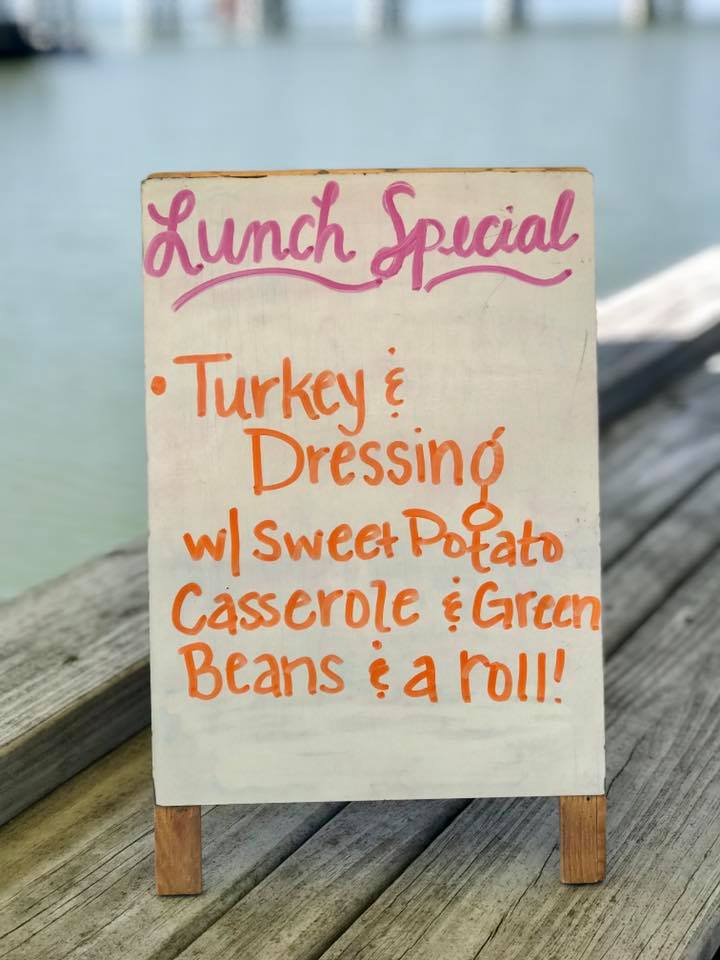 Lunch Special
• Turkey &
Dressing
w/ Sweet Potato
Casserole & Green
Beans & a roll!